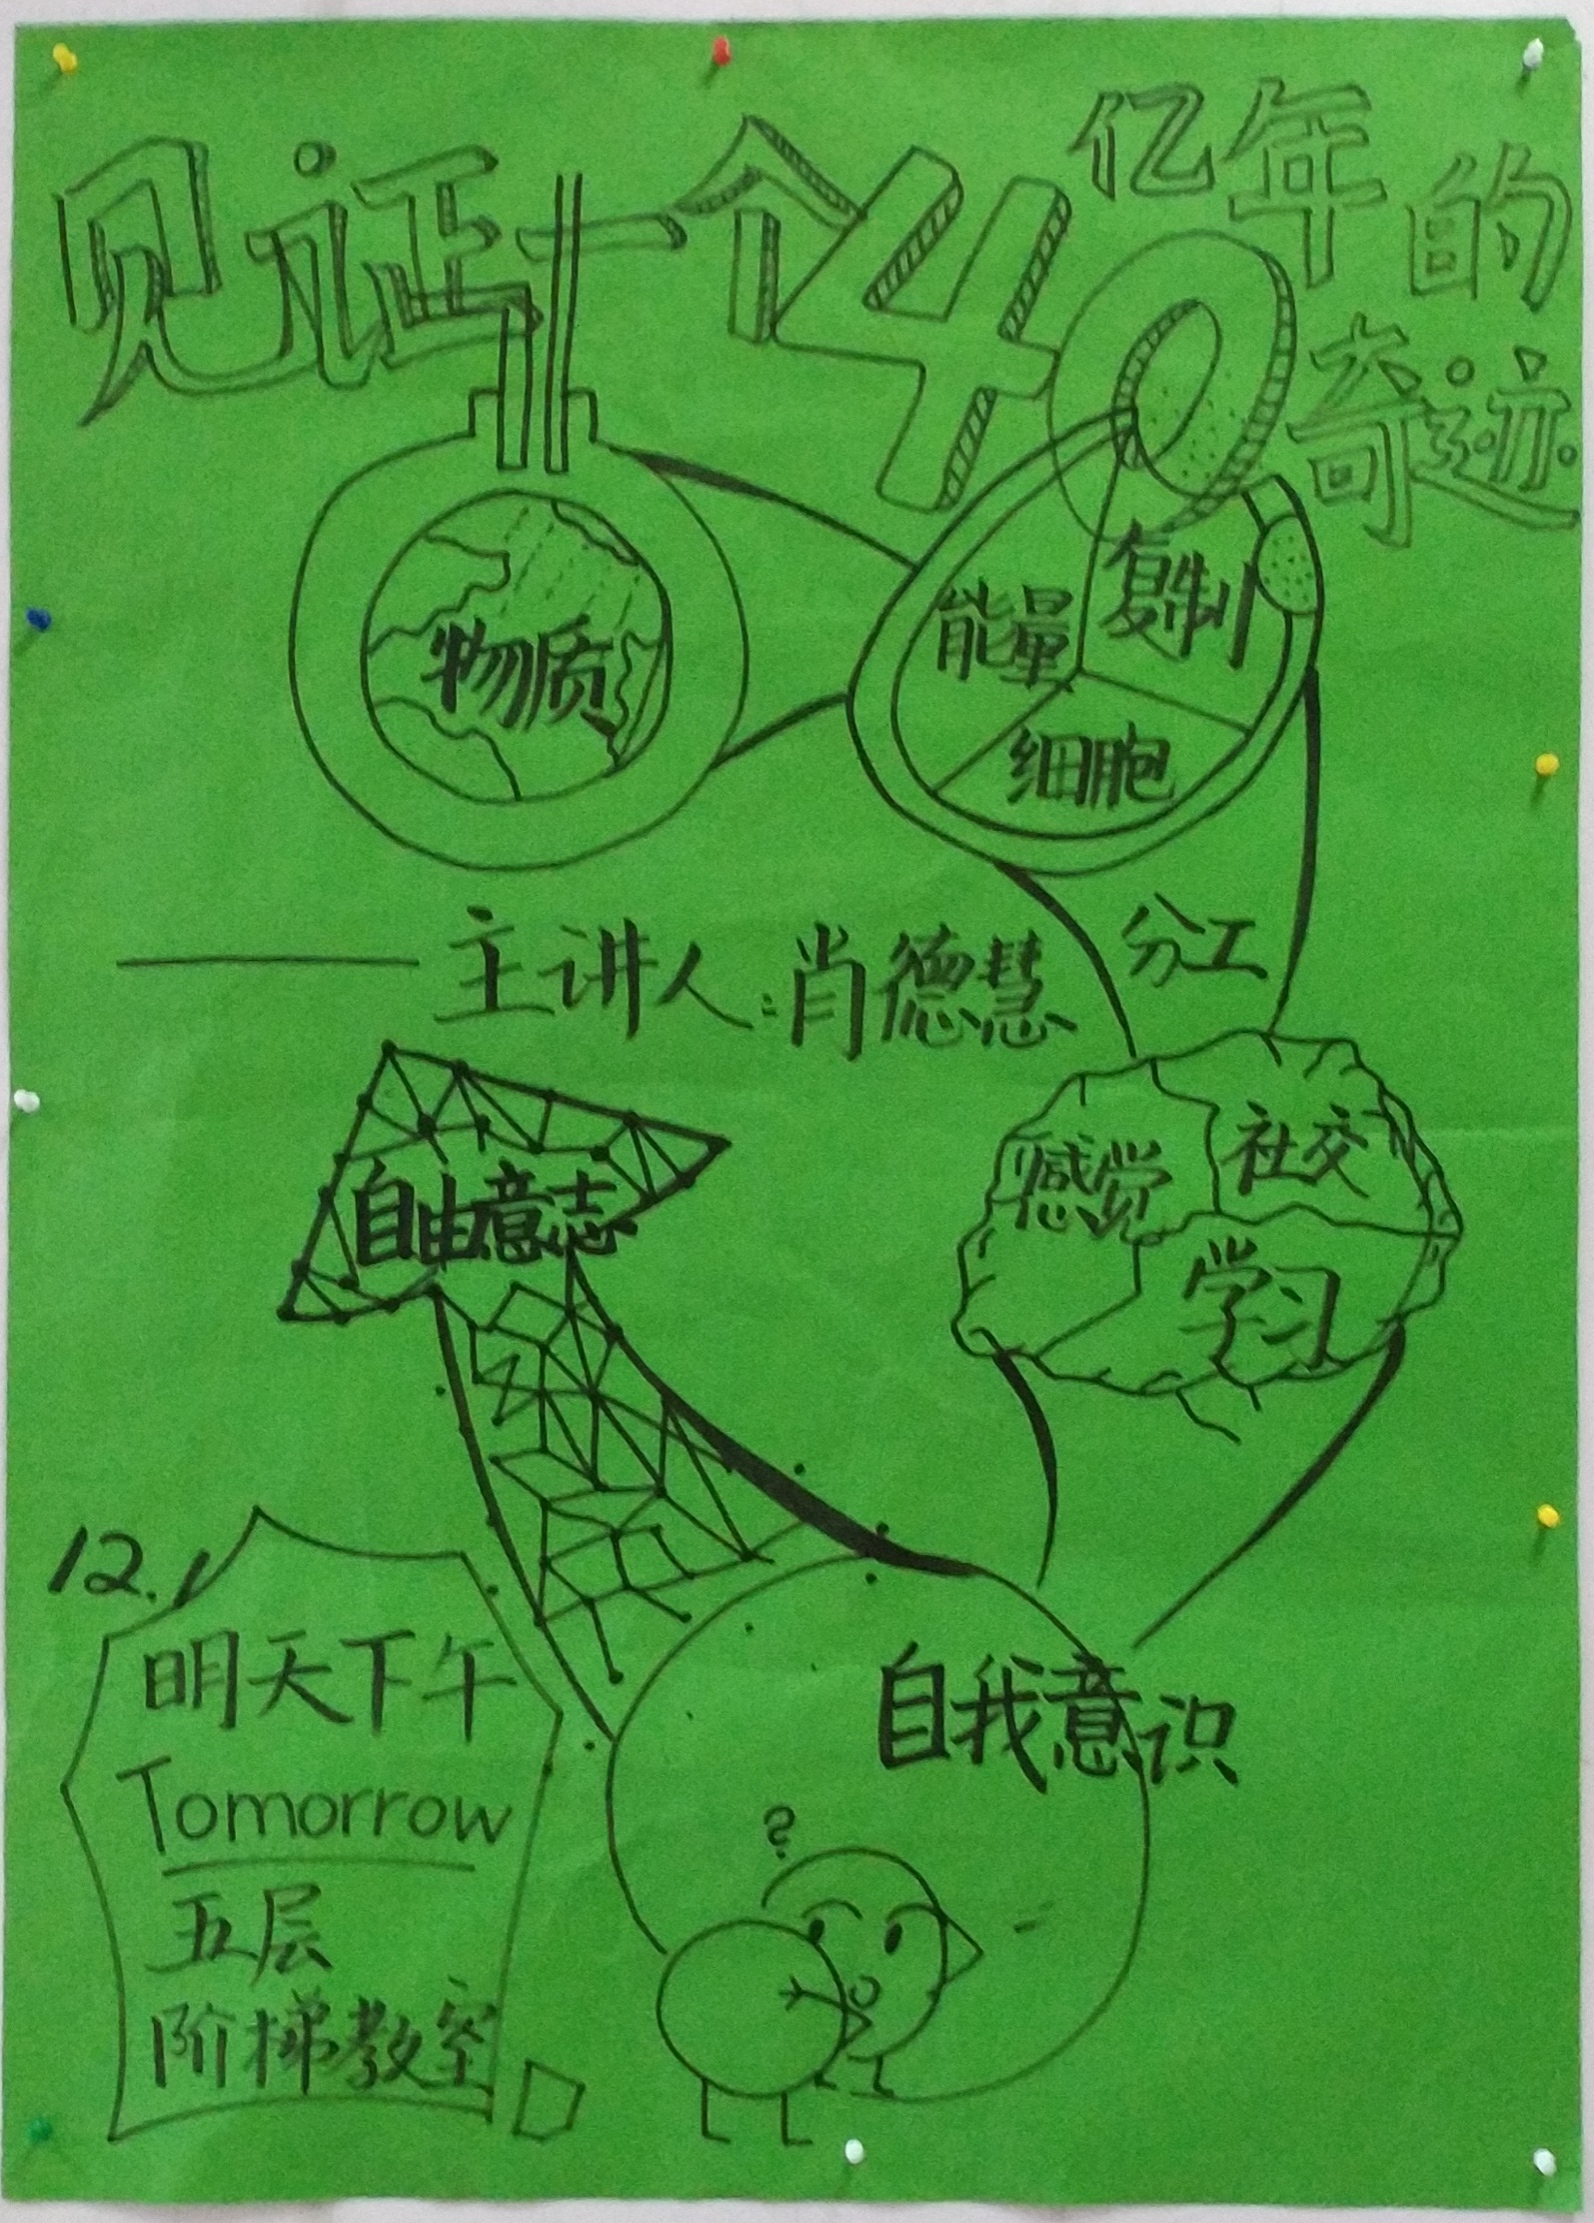 见证一个40亿年的
奇迹
物质
能量
复制
细胞
——主讲人:肖德慧
分工
感觉
社交
学习
自由意志
自我意识
?
12.1
明天下午
Tomorrow
五层
阶梯教室